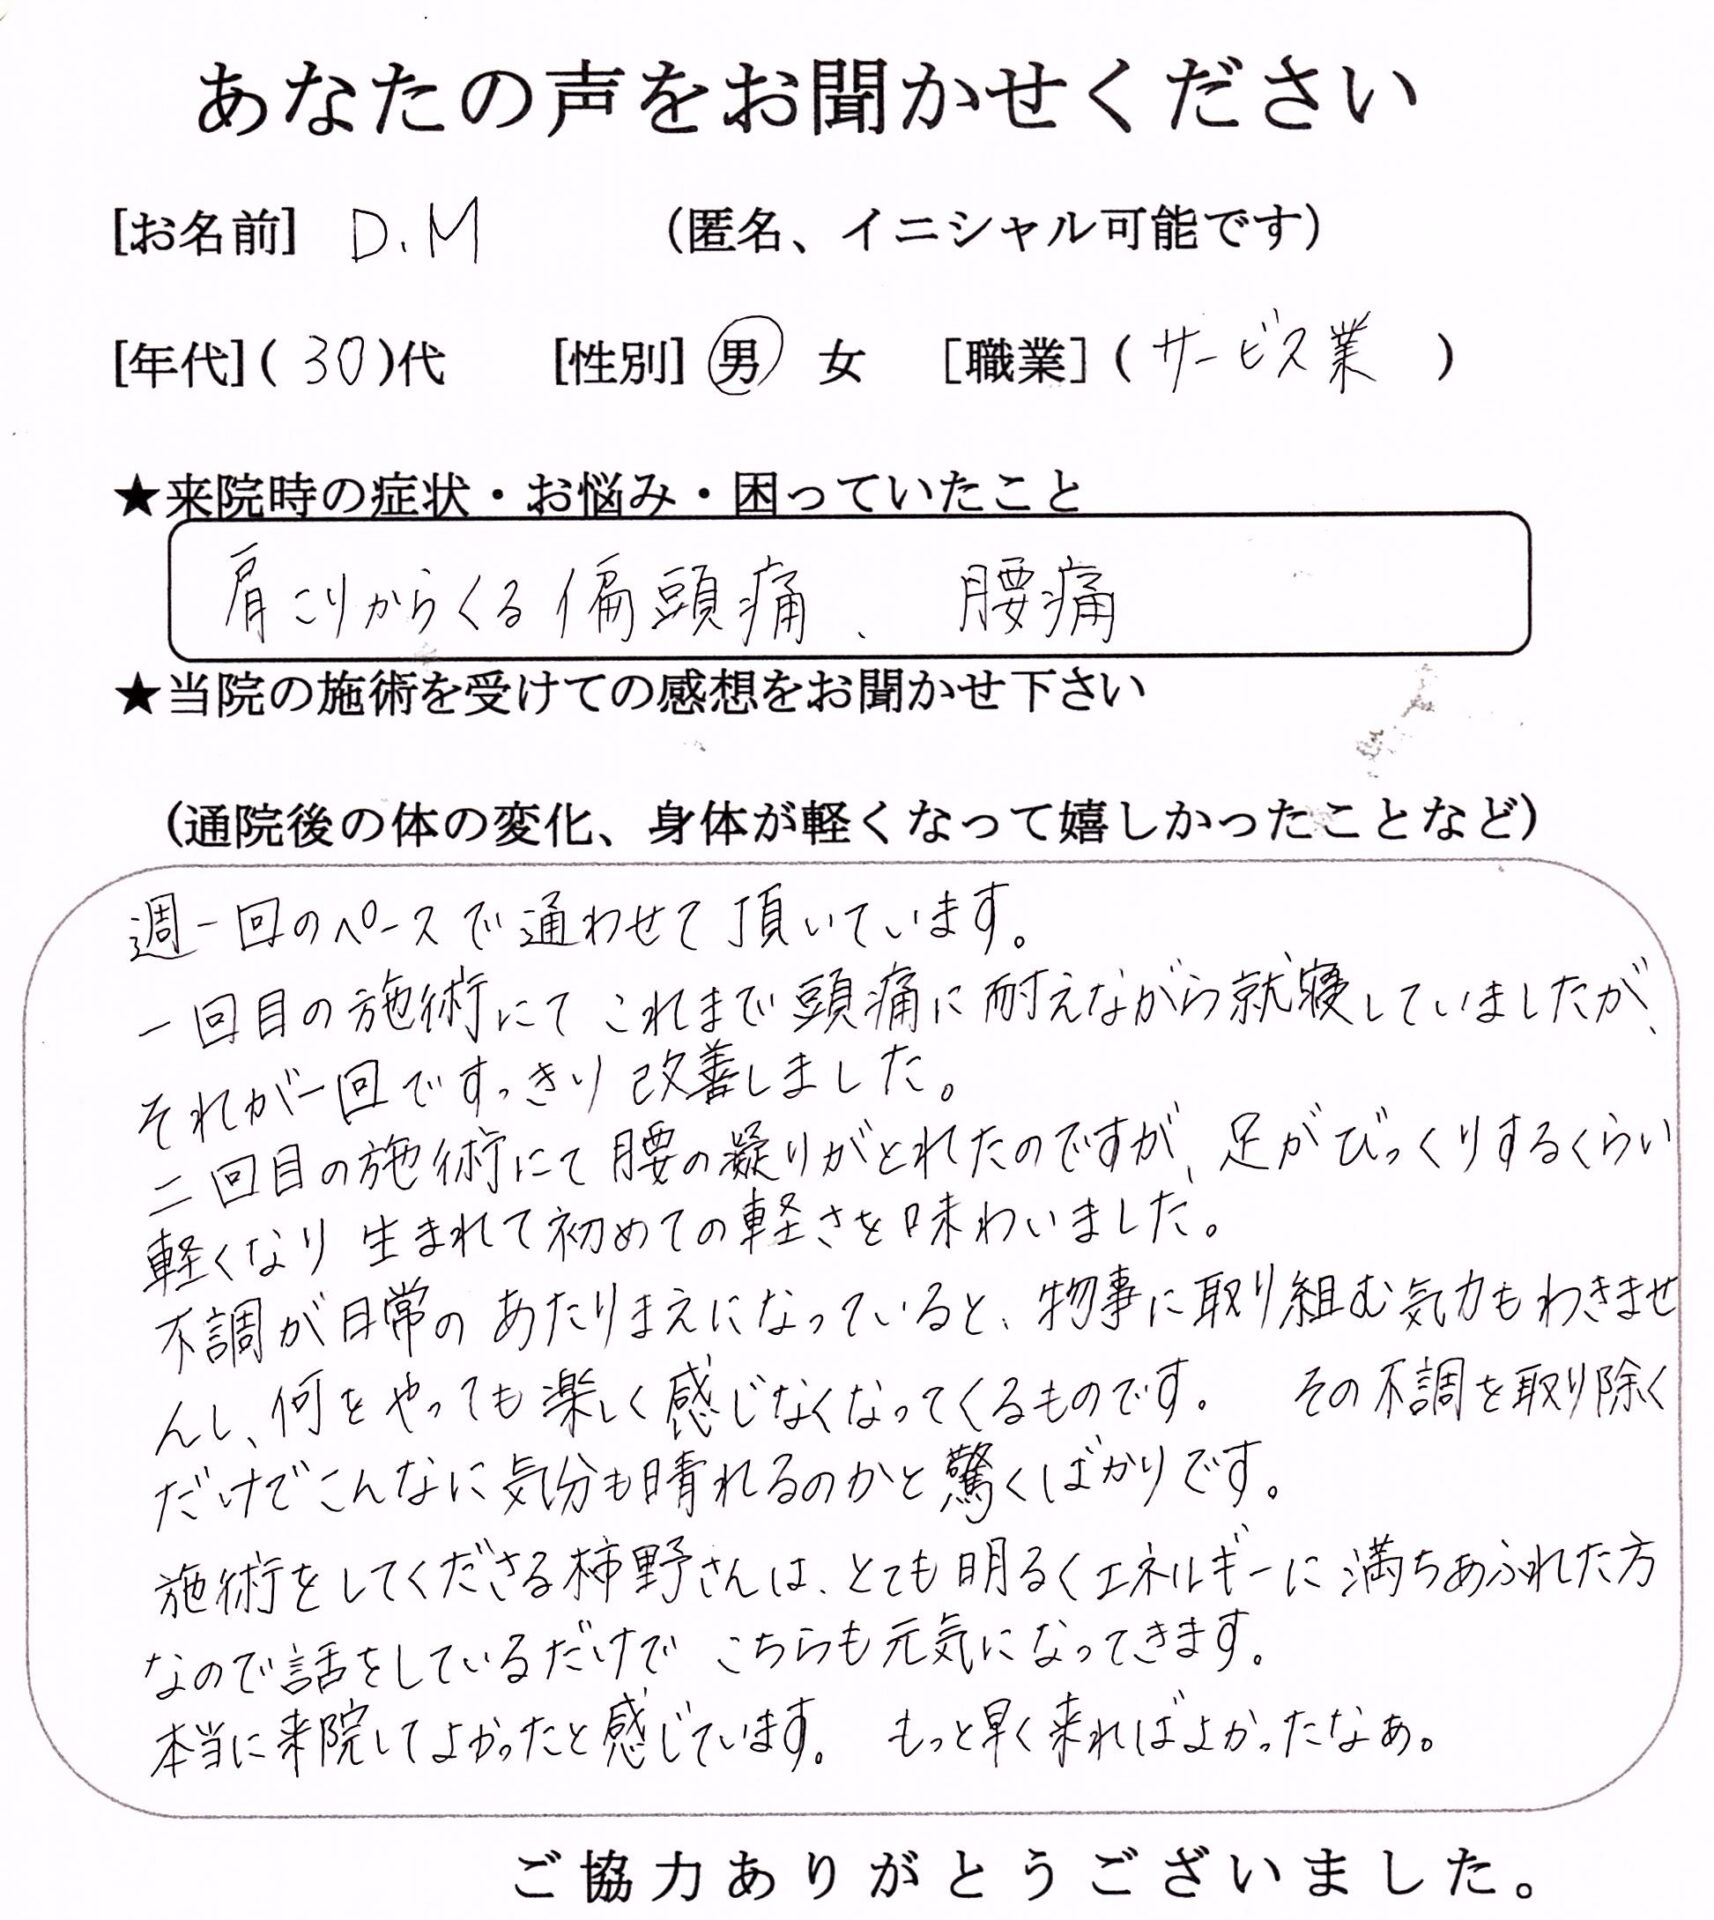 あなたの声をお聞かせください
[お名前] D.M (匿名、イニシャル可能です)
[年代](30)代 [性別] 男 女 [職業](サービス業)
★来院時の症状・お悩み・困っていたこと
肩こりからくる偏頭痛、腰痛
★当院の施術を受けての感想をお聞かせ下さい
(通院後の体の変化、身体が軽くなって嬉しかったことなど)
週一回のペースで通わせて頂いています。
一回目の施術にてこれまで頭痛に耐えながら就寝していましたが、
それが一回ですっきり改善しました。
二回目の施術にて腰の凝りがとれたのですが、足がびっくりするくらい
軽くなり生まれて初めての軽さを味わいました。
不調が日常のあたりまえになっていると、物事に取り組む気力もわきませ
んし、何をやっても楽しく感じなくなってくるものです。 その不調を取り除く
だけでこんなに気分も晴れるのかと驚くばかりです。
施術をしてくださる柿野さんは、とても明るくエネルギーに満ちあふれた方
なので話をしているだけでこちらも元気になってきます。
本当に来院してよかったと感じています。 もっと早く来ればよかったなぁ。
ご協力ありがとうございました。